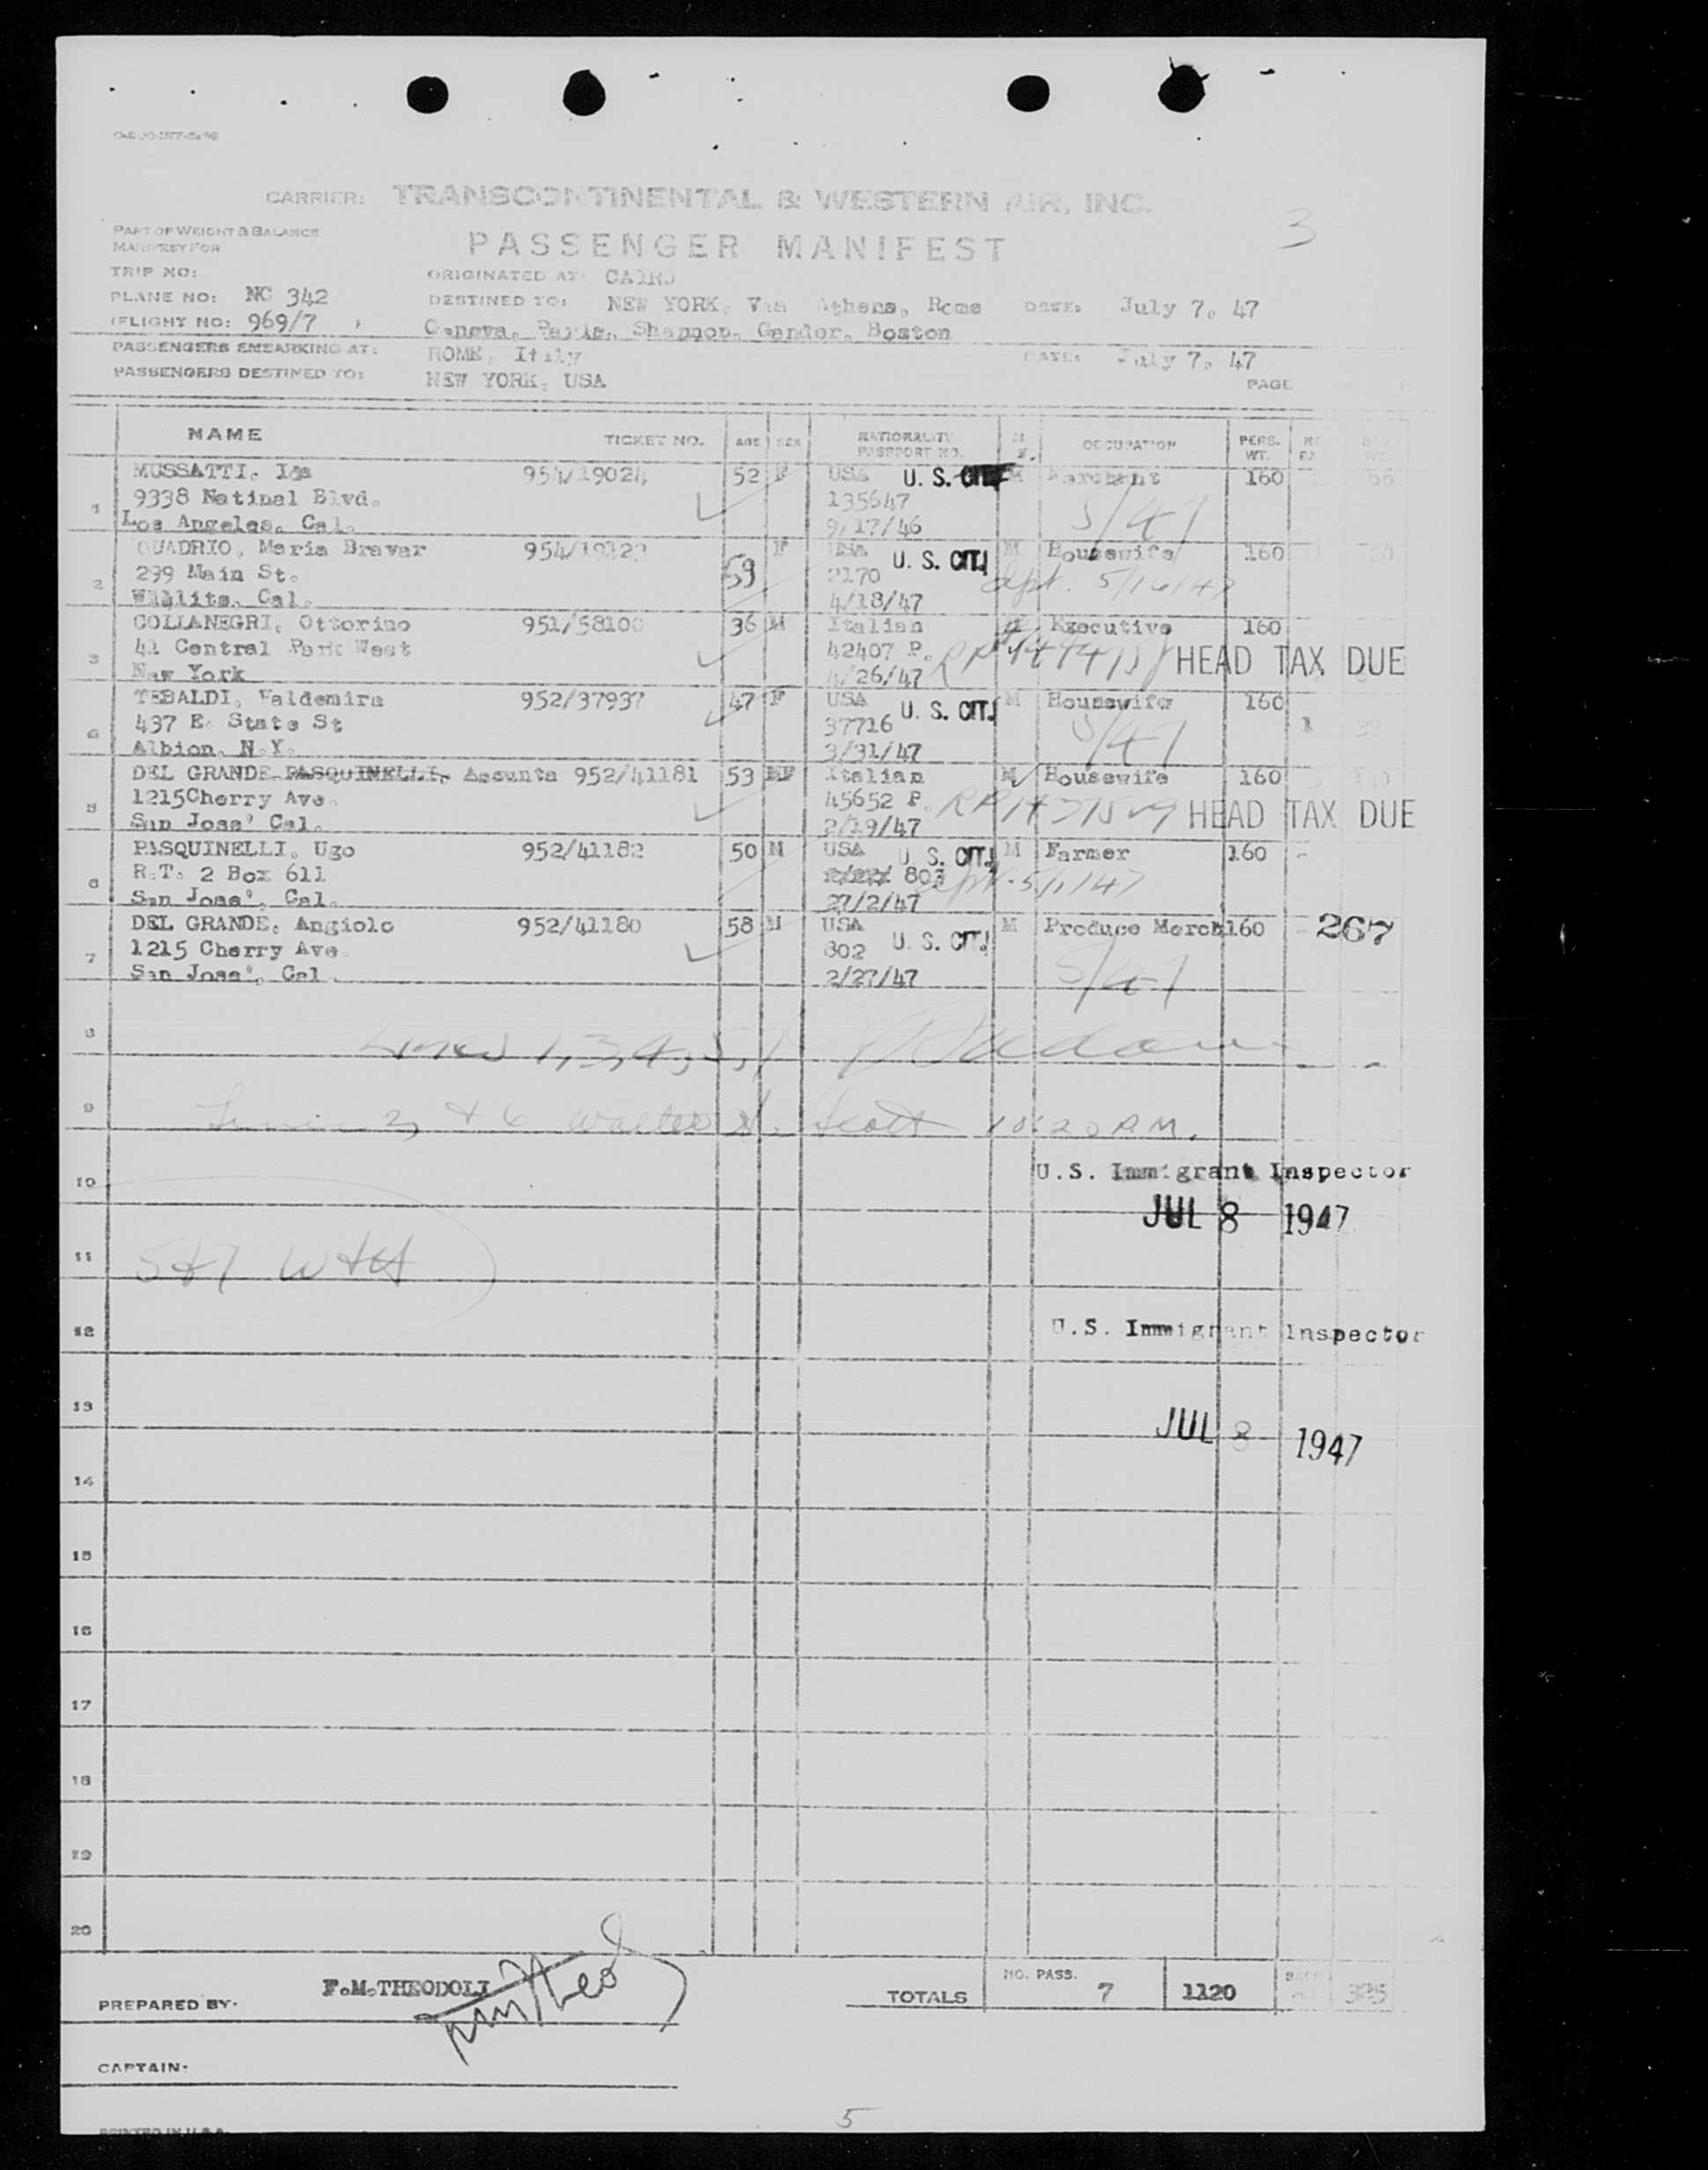 CARRIER: TRANSCONTINENTAL & WESTERN AIR, INC.
3
PART OF WEIGHT & BALANCE
MANIFEST FOR
PASSENGER MANIFEST
TRIP NO:
ORIGINATED AT: CAIRO
PLANE NO: NC 342
DESTINED TO: NEW YORK, Via Athens, Rome DATE: July 7, 47
(FLIGHT NO: 969/7 )
Geneva, Paris, Shannon, Gander, Boston
PASSENGERS EMBARKING AT: ROME, Italy DATE: July 7, 47
PASSENGERS DESTINED TO: NEW YORK, USA
PAGE
NAME TICKET NO. AGE SEX NATIONALITY PASSPORT NO. M OCCUPATION PERS. WT.
1 MUSSATTI, Ida 954/19024 52 F USA U. S. Merchant 160
9338 Natinal Blvd. 135647
Los Angeles, Cal. 9/17/46
2 QUADRIO, Maria Bravar 59 F USA U. S. CIT. M Housewife 160
299 Main St. 2170 5/16/47
Willits, Cal. 4/18/47
3 COLLANEGRI, Ottorino 951/58100 36 M Italian Executive 160
41 Central Park West 42407 P. HEAD TAX DUE
New York 4/26/47
4 TEBALDI, Valdemira 952/37937 47 F USA U. S. CIT. M Housewife 160
437 E. State St 37716
Albion, N.Y. 3/31/47
5 DEL GRANDE PASQUINELLI, Assunta 952/41181 53 MF Italian M Housewife 160
1215Cherry Ave. 45652 P. HEAD TAX DUE
San Jose' Cal. 2/19/47
6 PASQUINELLI, Ugo 952/41182 50 M USA U. S. CIT. M Farmer 160
R.T. 2 Box 611 803
San Jose', Cal. 27/2/47
7 DEL GRANDE, Angiolo 952/41180 58 M USA U. S. CIT. M Produce Merch 160 267
1215 Cherry Ave. 802
San Jose', Cal. 2/27/47
8
9 2, + 6 Walter H. Scott 10:20 P.M.
U.S. Immigrant Inspector
10
JUL 8 1947
11 5+7 W+H
12 U.S. Immigrant Inspector
13
JUL 8 1947
14
15
16
17
18
19
20
PREPARED BY: F.M.THEODOLI
TOTALS NO. PASS. 7 1120
CAPTAIN:
5
PRINTED IN U.S.A.